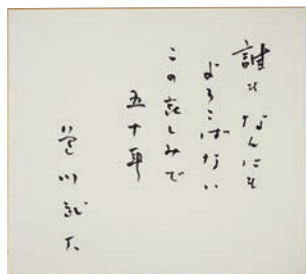 誰も なんにも
よろこばない
この哀しみで
五十年